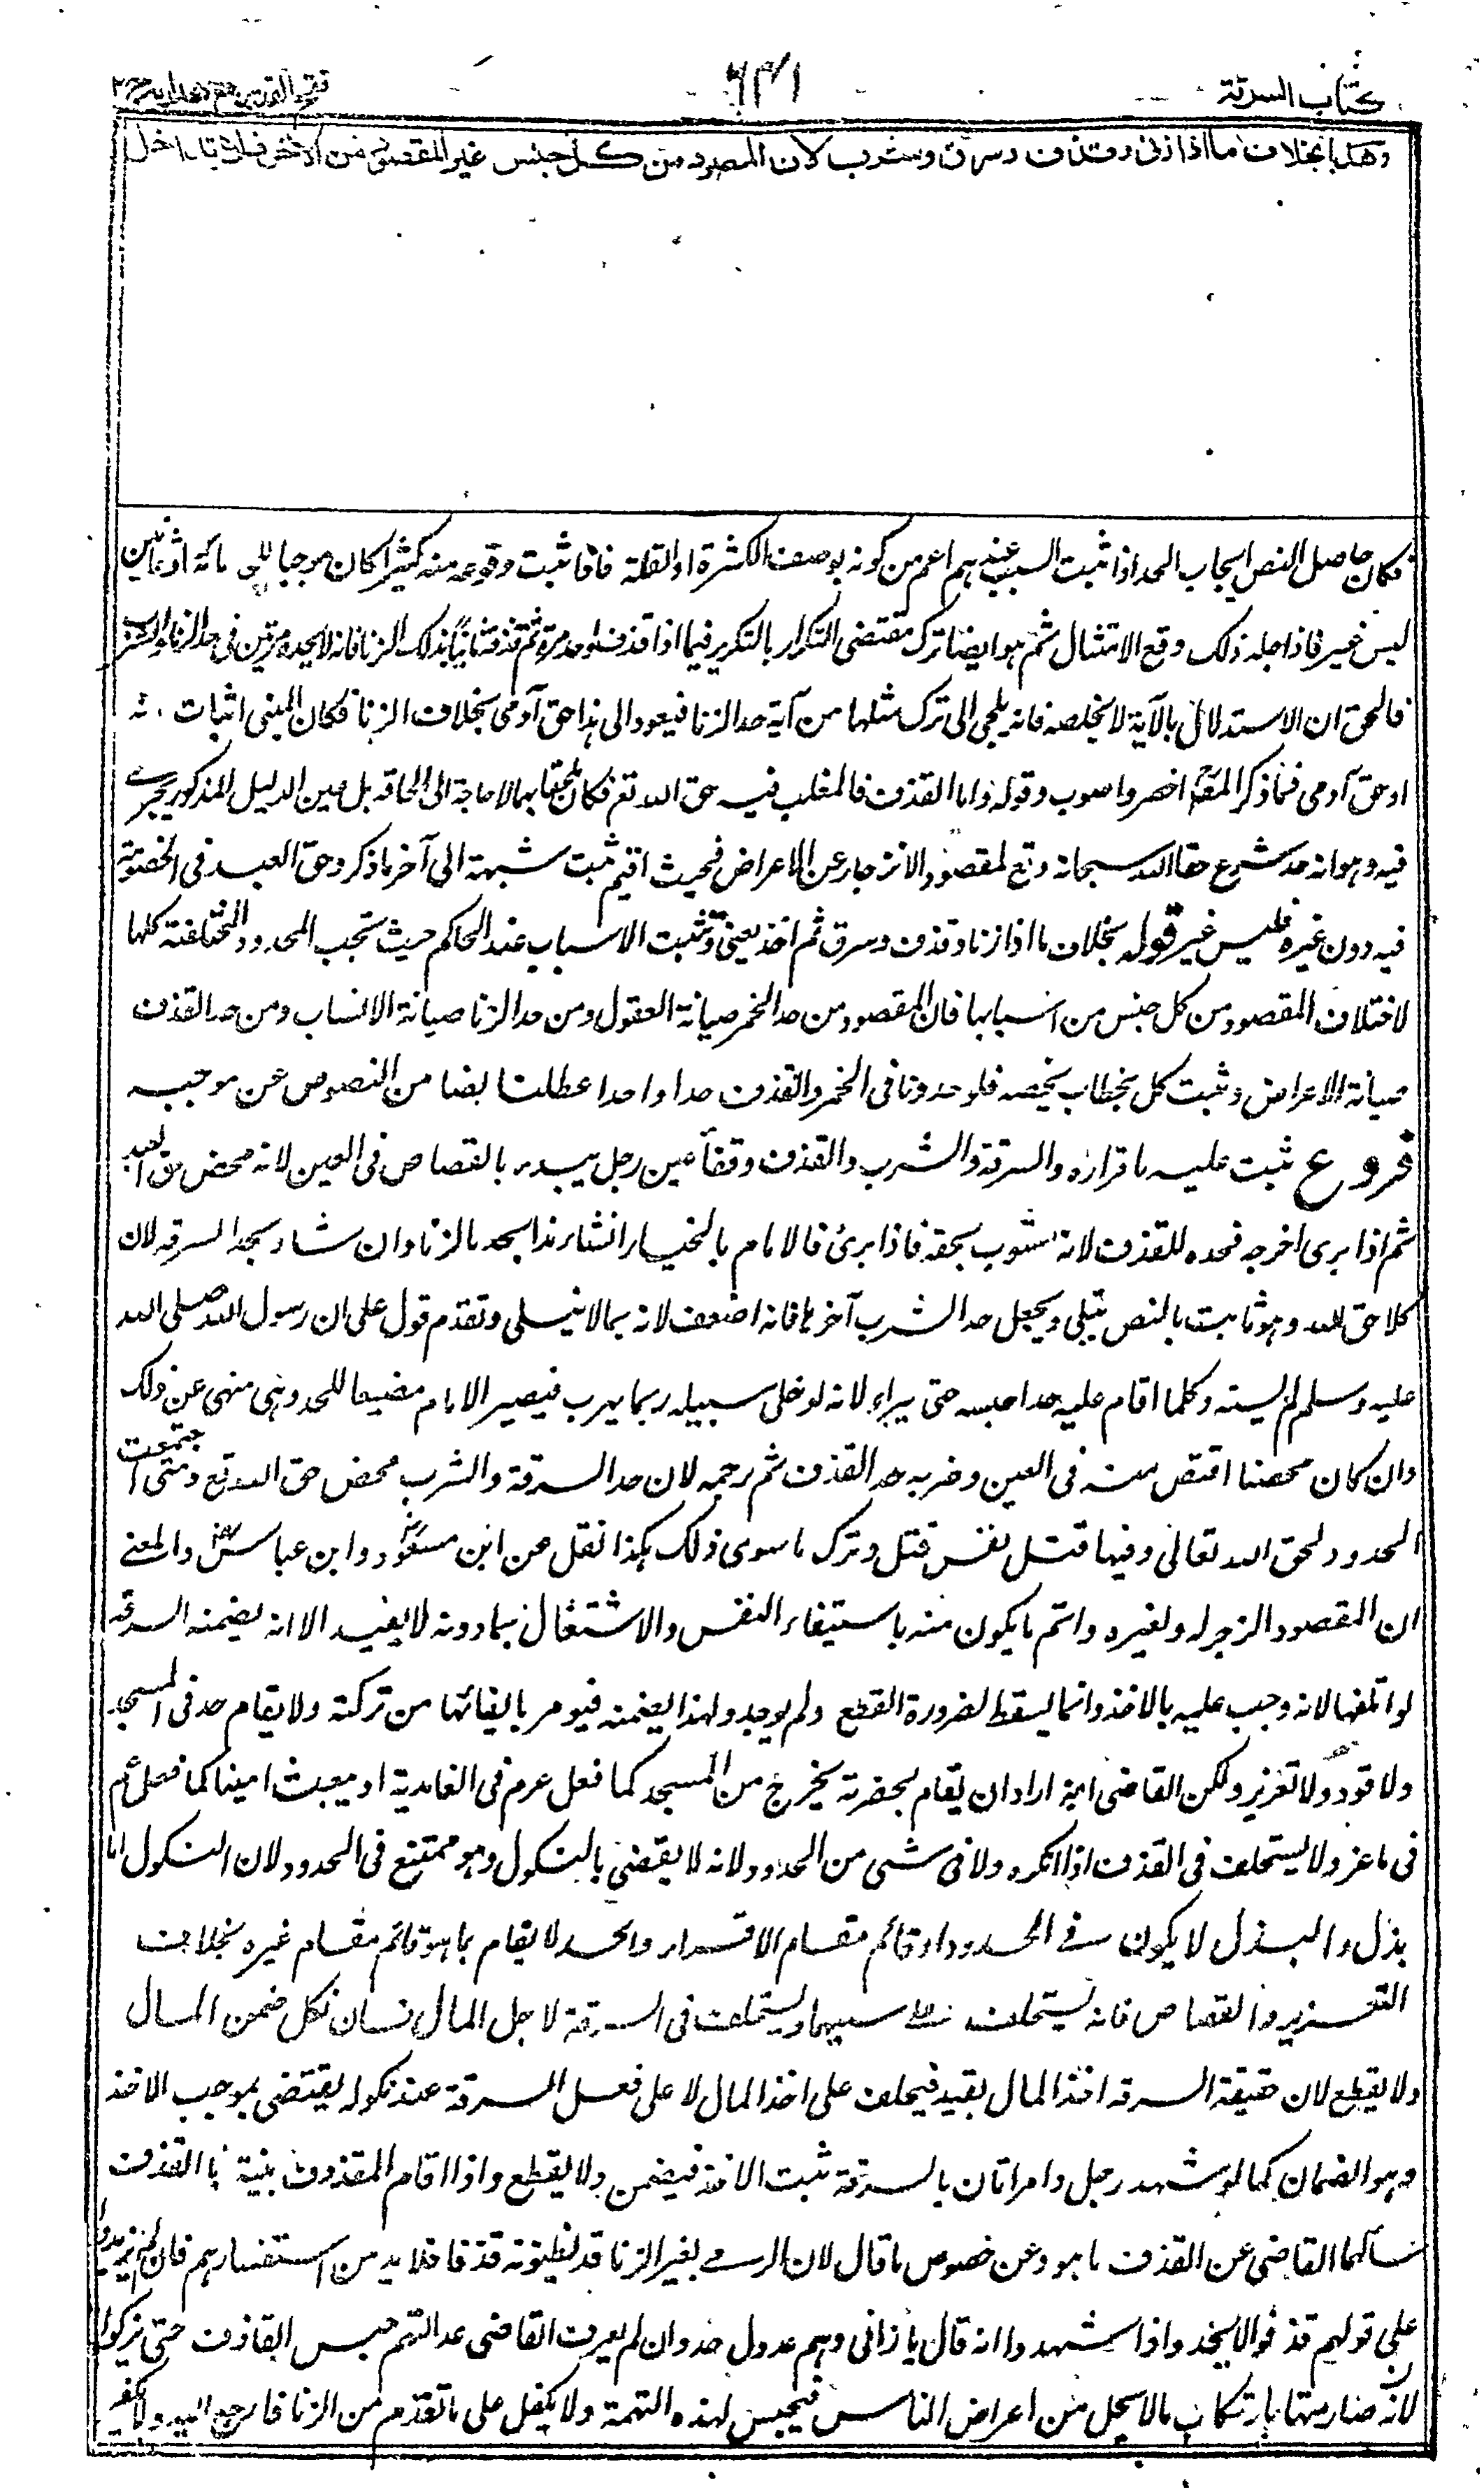 كتاب السرقة
٦٣١
فتح القدير مع هداية ج ٢
وهذا بخلاف ما اذا زنى وقذف وسرق وشرب لان المقصود من كل جنس غير المقصود من الآخر فلا يتداخل
فكان حاصل النص ايجاب الحد اذا ثبت السبب عندهم اعم من كونه بوصف الكثرة او القلة فاذا ثبت وقوعه منه كثيرا كان موجبا للى مائة او ثمانين
ليس غير فاذا جلد ذلك وقع الامتثال ثم هو ايضا ترك مقتضى التكرار بالتكرير فيما اذا قذف واحد مرة ثم قذفه ثانيا بذلك الزنا فانه لا يحد مرتين فى حد الزنا والشرب
فالحق ان الاستدلال بالآية لا يخلصه فانه يلجئ الى ترك مثلها من آية حد الزنا فيعود الى هذا حق آدمى بخلاف الزنا فكان المبنى اثبات انه
او حق آدمى فما ذكر المصنف اخصر واصوب وقوله واما القذف فالمغلب فيه حق الله تع فكان ملحقا بهما لا حاجة الى الحاقه بل عين الدليل المذكور يجرى
فيه وهو انه حد شرع حقا لله سبحانه وتع لمقصود الانزجار عن الاعراض فحيث اقيم ثبت شبهة الى آخر ما ذكر وحق العبد فى الخصومة
فيه دون غيره فليس غير قوله بخلاف ما اذا زنا وقذف وسرق ثم اخذ يعنى وتثبت الاسباب عند الحاكم حيث تجب الحدود المختلفة كلها
لاختلاف المقصود من كل جنس من اسبابها فان المقصود من حد الخمر صيانة العقول ومن حد الزنا صيانة الانساب ومن حد القذف
صيانة الاعراض وثبت كل بخطاب يخصه فلو حددنا فى الخمر والقذف حدا واحدا عطلنا نصا من النصوص عن موجبه
فروع ثبت عليه باقراره والسرقة والشرب والقذف وفقأ عين رجل يبدء بالقصاص فى العين لانه محض حق العبد
ثم اذا برئ اخرجه فحده للقذف لانه مشوب بحقه فاذا برئ فالامام بالخيار ان شاء بدا بحد الزنا وان شاء بحد السرقه لان
كلا حق لله وهو ثابت بالنص يتلى ويجعل حد الشرب آخرها فانه اضعف لانه بما لا يتلى وتقدم قول على ان رسول الله صلى الله
عليه وسلم لم يسنه وكلما اقام عليه حدا حبسه حتى يبراء لانه لو خلى سبيله ربما يهرب فيصير الامام مضيعا للحد وهى منهى عن ذلك
وان كان محصنا اقتص منه فى العين وضربه حد القذف ثم رجمه لان حد السرقة والشرب محض حق الله تع ومتى اجتمعت
الحدود لحق الله تعالى وفيها قتل نفس قتل وترك ما سوى ذلك هكذا نقل عن ابن مسعود وابن عباس والمعنى
ان المقصود الزجر له ولغيره واتم ما يكون منه باستيفاء النفس والاشتغال بما دونه لا يفيد الا انه يضمنه السرقه
لو اتلفها لانه وجب عليه بالاخذ وانما يسقط لضرورة القطع ولم يوجد ولهذا يضمنه فيومر بايفائها من تركته ولا يقام حد فى المسجد
ولا قود ولا تعزير ولكن القاضى اذا اراد ان يقام بحضرته يخرج من المسجد كما فعل عم فى الغامدية او يبعث امينا كما فعل عم
فى ماعز ولا يستحلف فى القذف اذا انكره ولا فى شىء من الحدود لانه لا يقضى بالنكول وهو ممتنع فى الحدود لان النكول اما
بذل والبذل لا يكون فى الحدود او قائم مقام الاقرار والحد لا يقام بما هو قائم مقام غيره بخلاف
التعزير والقصاص فانه يستحلف على سببهما ويستحلف فى السرقة لاجل المال فان نكل ضمن المال
ولا يقطع لان حقيقة السرقه اخذ المال بقيد فيحلف على اخذ المال لا على فعل السرقة عند نكوله يقتضى بموجب الاخذ
وهو الضمان كما لو شهد رجل وامراتان بالسرقة ثبت الاخذ فيضمن ولا يقطع واذا اقام المقذوف بينة بالقذف
سالهما القاضى عن القذف ما هو وعن خصوص ما قال لان الرمى بغير الزنا قد يظنونه قذفا فلا بد من استفسارهم فان لم يزيدوا
على قولهم قذفوا لا يحد واذا شهدوا انه قال يا زانى وهم عدول حد وان لم يعرف القاضى عدالتهم حبس القاذف حتى يزكوا
لانه صار متهما بارتكاب ما لا يحل من اعراض الناس فيحبس لهذه التهمة ولا يكفل على ما تقدم من الزنا فارجع اليه ولا يكفر